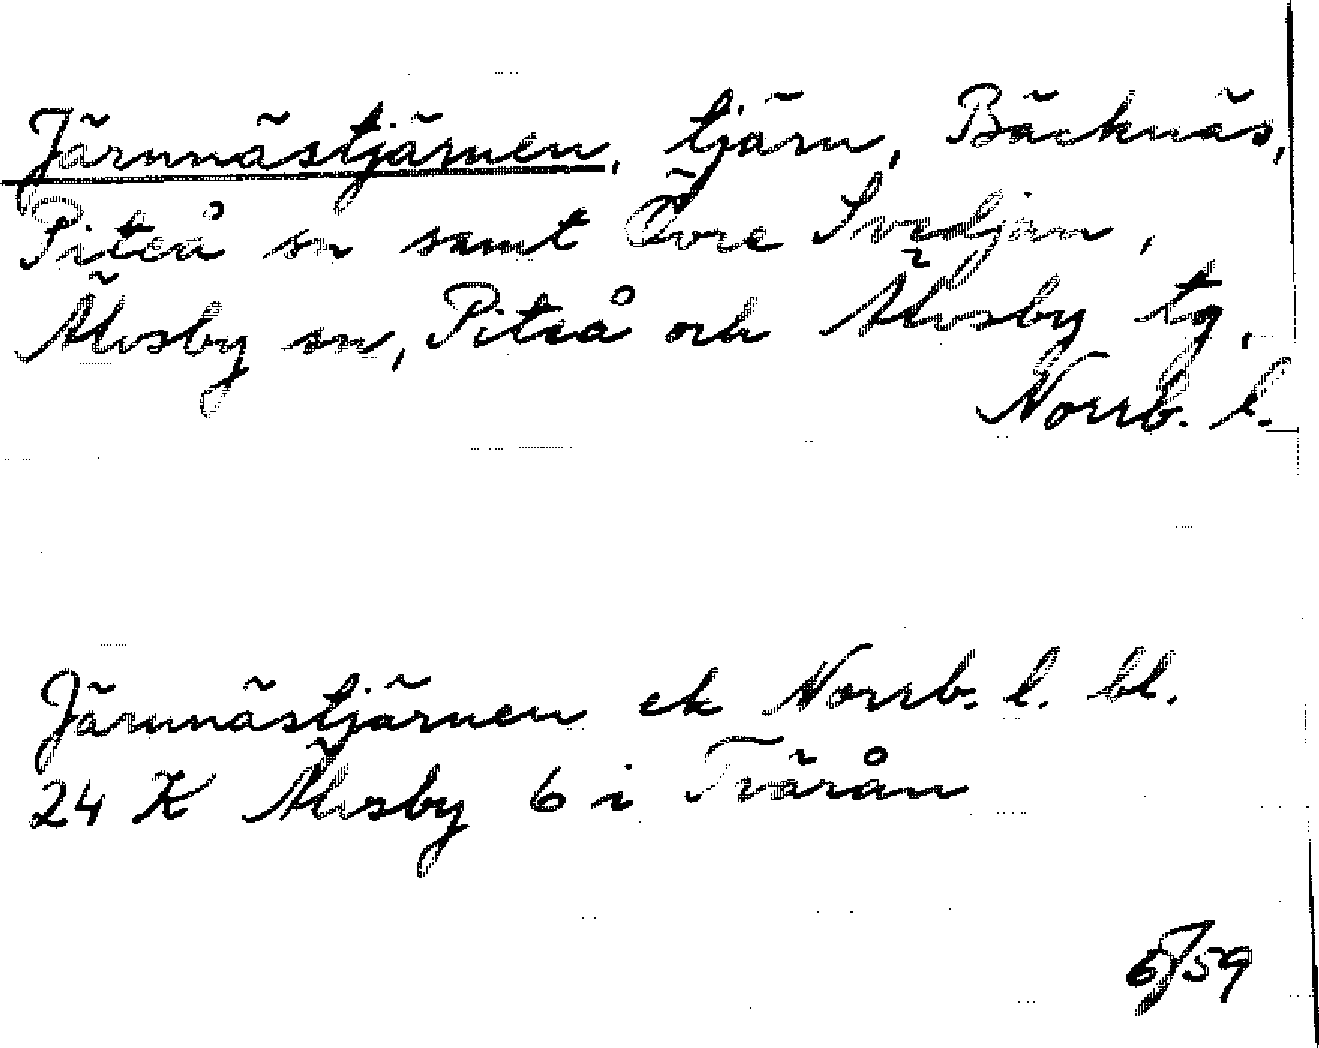 Järnnästjärnen, tjärn, Bäcknäs,
Piteå sn samt Övre Svedjan,
Älvsby sn, Piteå och Älvsby tg,
Norrb. l.
Järnnästjärnen ek Norrb. l. bl.
24 K Älvsby 6 i Tvärån
59